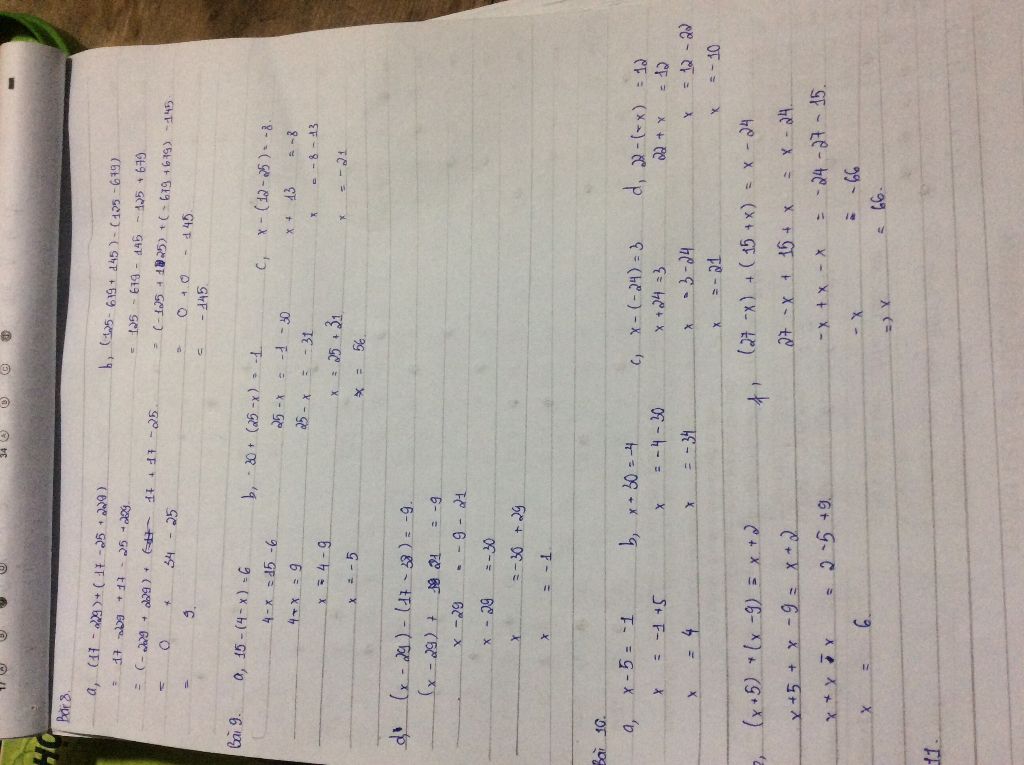 Bài 8.
a, (17 - 229) + (17 - 25 + 229)
= 17 - 229 + 17 - 25 + 229
= (-229 + 229) + 17 + 17 - 25.
= 0 + 34 - 25
= 9.
b, (125 - 679 + 145) - (125 - 679)
= 125 - 679 - 145 - 125 + 679
= (-125 + 125) + (-679 + 679) - 145.
= 0 + 0 - 145
= -145.
Bài 9.
a, 15 - (4 - x) = 6
4 - x = 15 - 6
4 - x = 9
x = 4 - 9
x = -5
b, -30 + (25 - x) = -1
25 - x = -1 - 30
25 - x = -31
x = 25 + 31
x = 56.
c, x - (12 - 25) = -8.
x + 13 = -8
x = -8 - 13
x = -21
d, (x - 29) - (17 - 38) = -9.
(x - 29) + 21 = -9
x - 29 = -9 - 21
x - 29 = -30
x = -30 + 29
x = -1
Bài 10.
a, x - 5 = -1
x = -1 + 5
x = 4
b, x + 30 = -4
x = -4 - 30
x = -34
c, x - (-24) = 3
x + 24 = 3
x = 3 - 24
x = -21
d, 22 - (-x) = 12
22 + x = 12
x = 12 - 22
x = -10
(x + 5) + (x - 9) = x + 2
x + 5 + x - 9 = x + 2
x + x - x = 2 - 5 + 9.
x = 6
f, (27 - x) + (15 + x) = x - 24
27 - x + 15 + x = x - 24
-x + x - x = -24 - 27 - 15.
-x = -66
=> x = 66.
11.